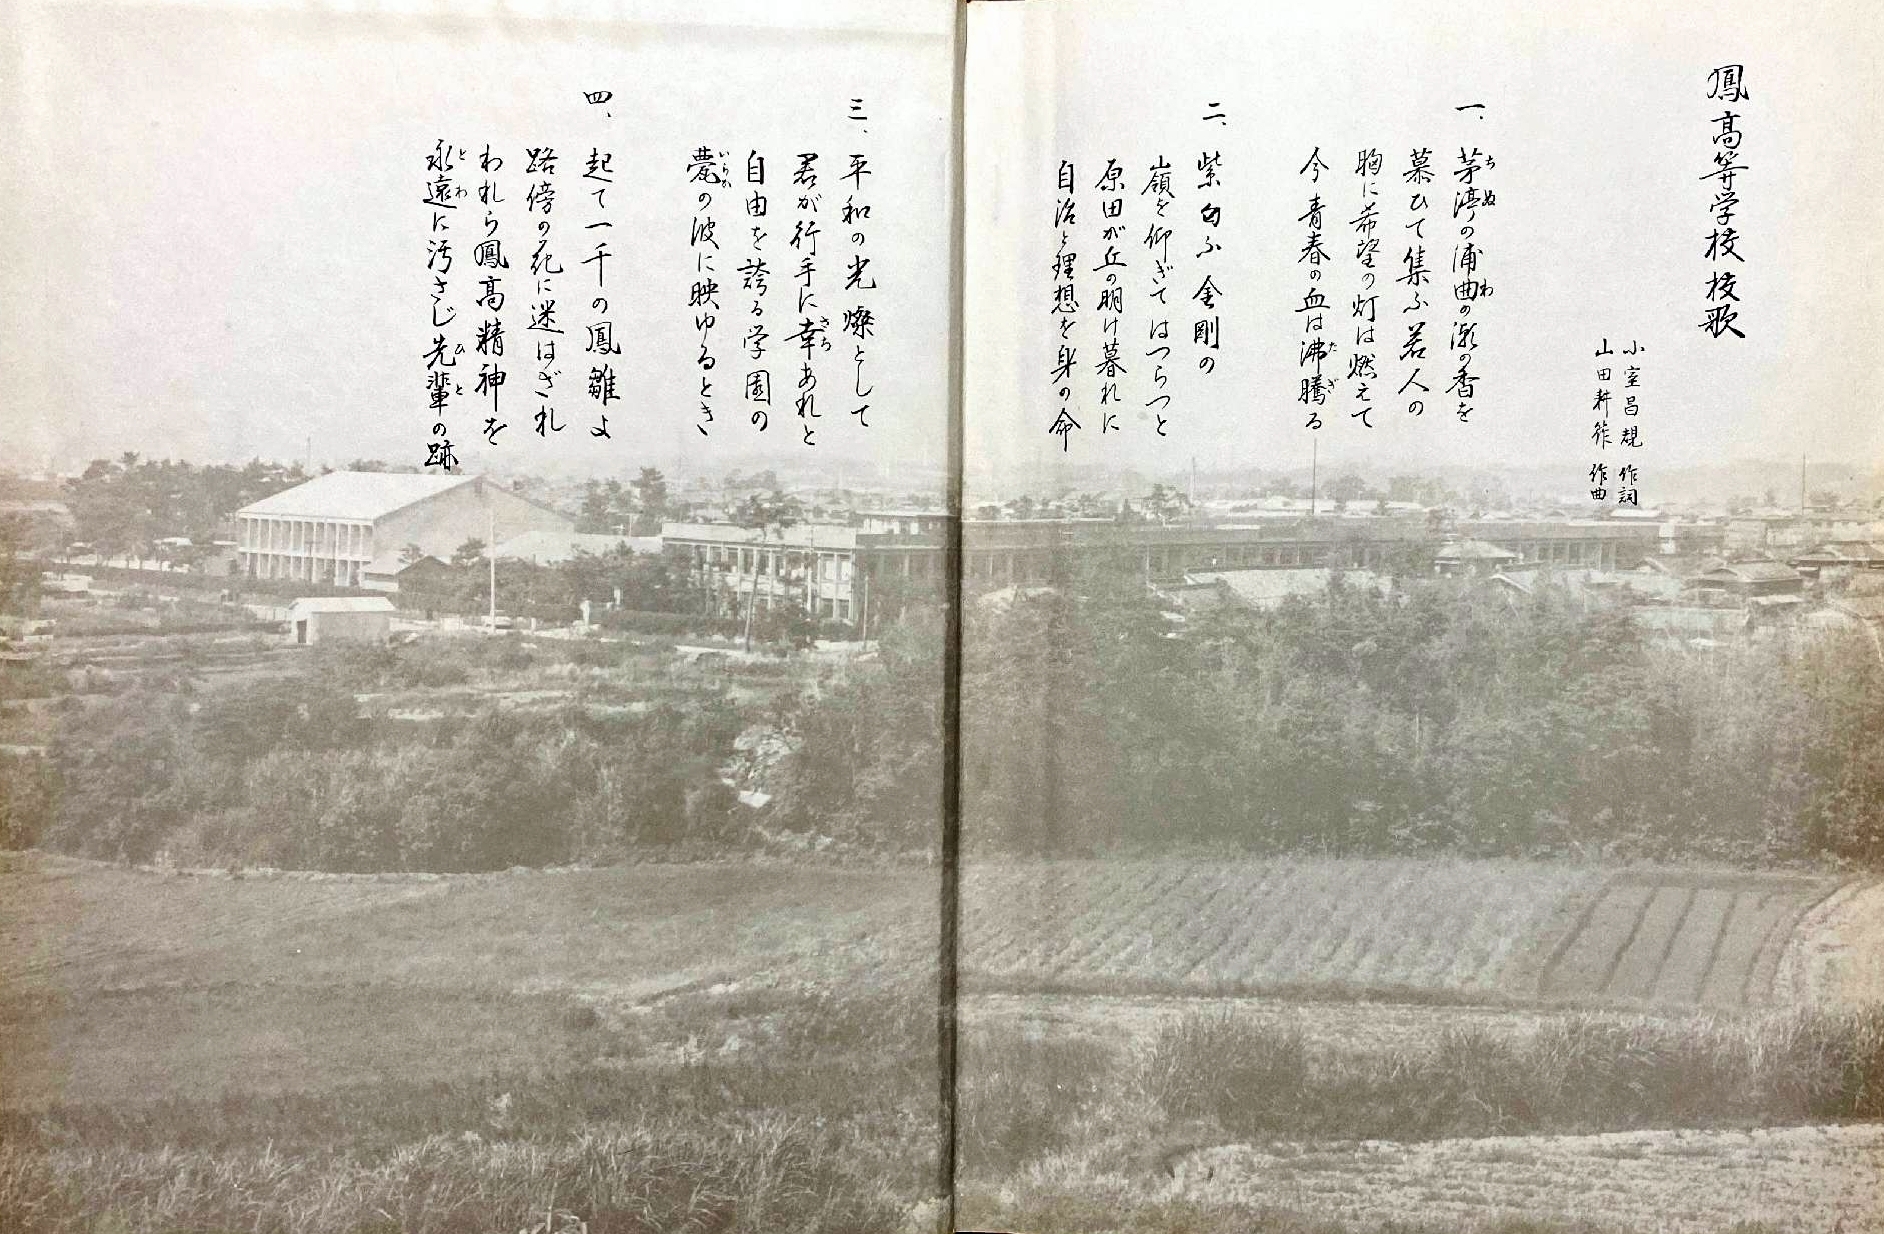 鳳高等学校校歌
小室昌規 作詞
山田耕筰 作曲
一、茅渟の浦曲の潮の香を
ちぬ わ
慕ひて集ふ若人の
胸に希望の灯は燃えて
今青春の血は沸騰る
たぎ
二、紫匂ふ金剛の
嶺を仰ぎてはつらつと
原田が丘の明け暮れに
自治と理想を身の命
三、平和の光燦として
君が行手に幸あれと
さち
自由を誇る学園の
甍の波に映ゆるとき
いらか
四、起て一千の鳳雛よ
路傍の花に迷はざれ
われら鳳高精神を
永遠に汚さじ先輩の跡
とわ ひと